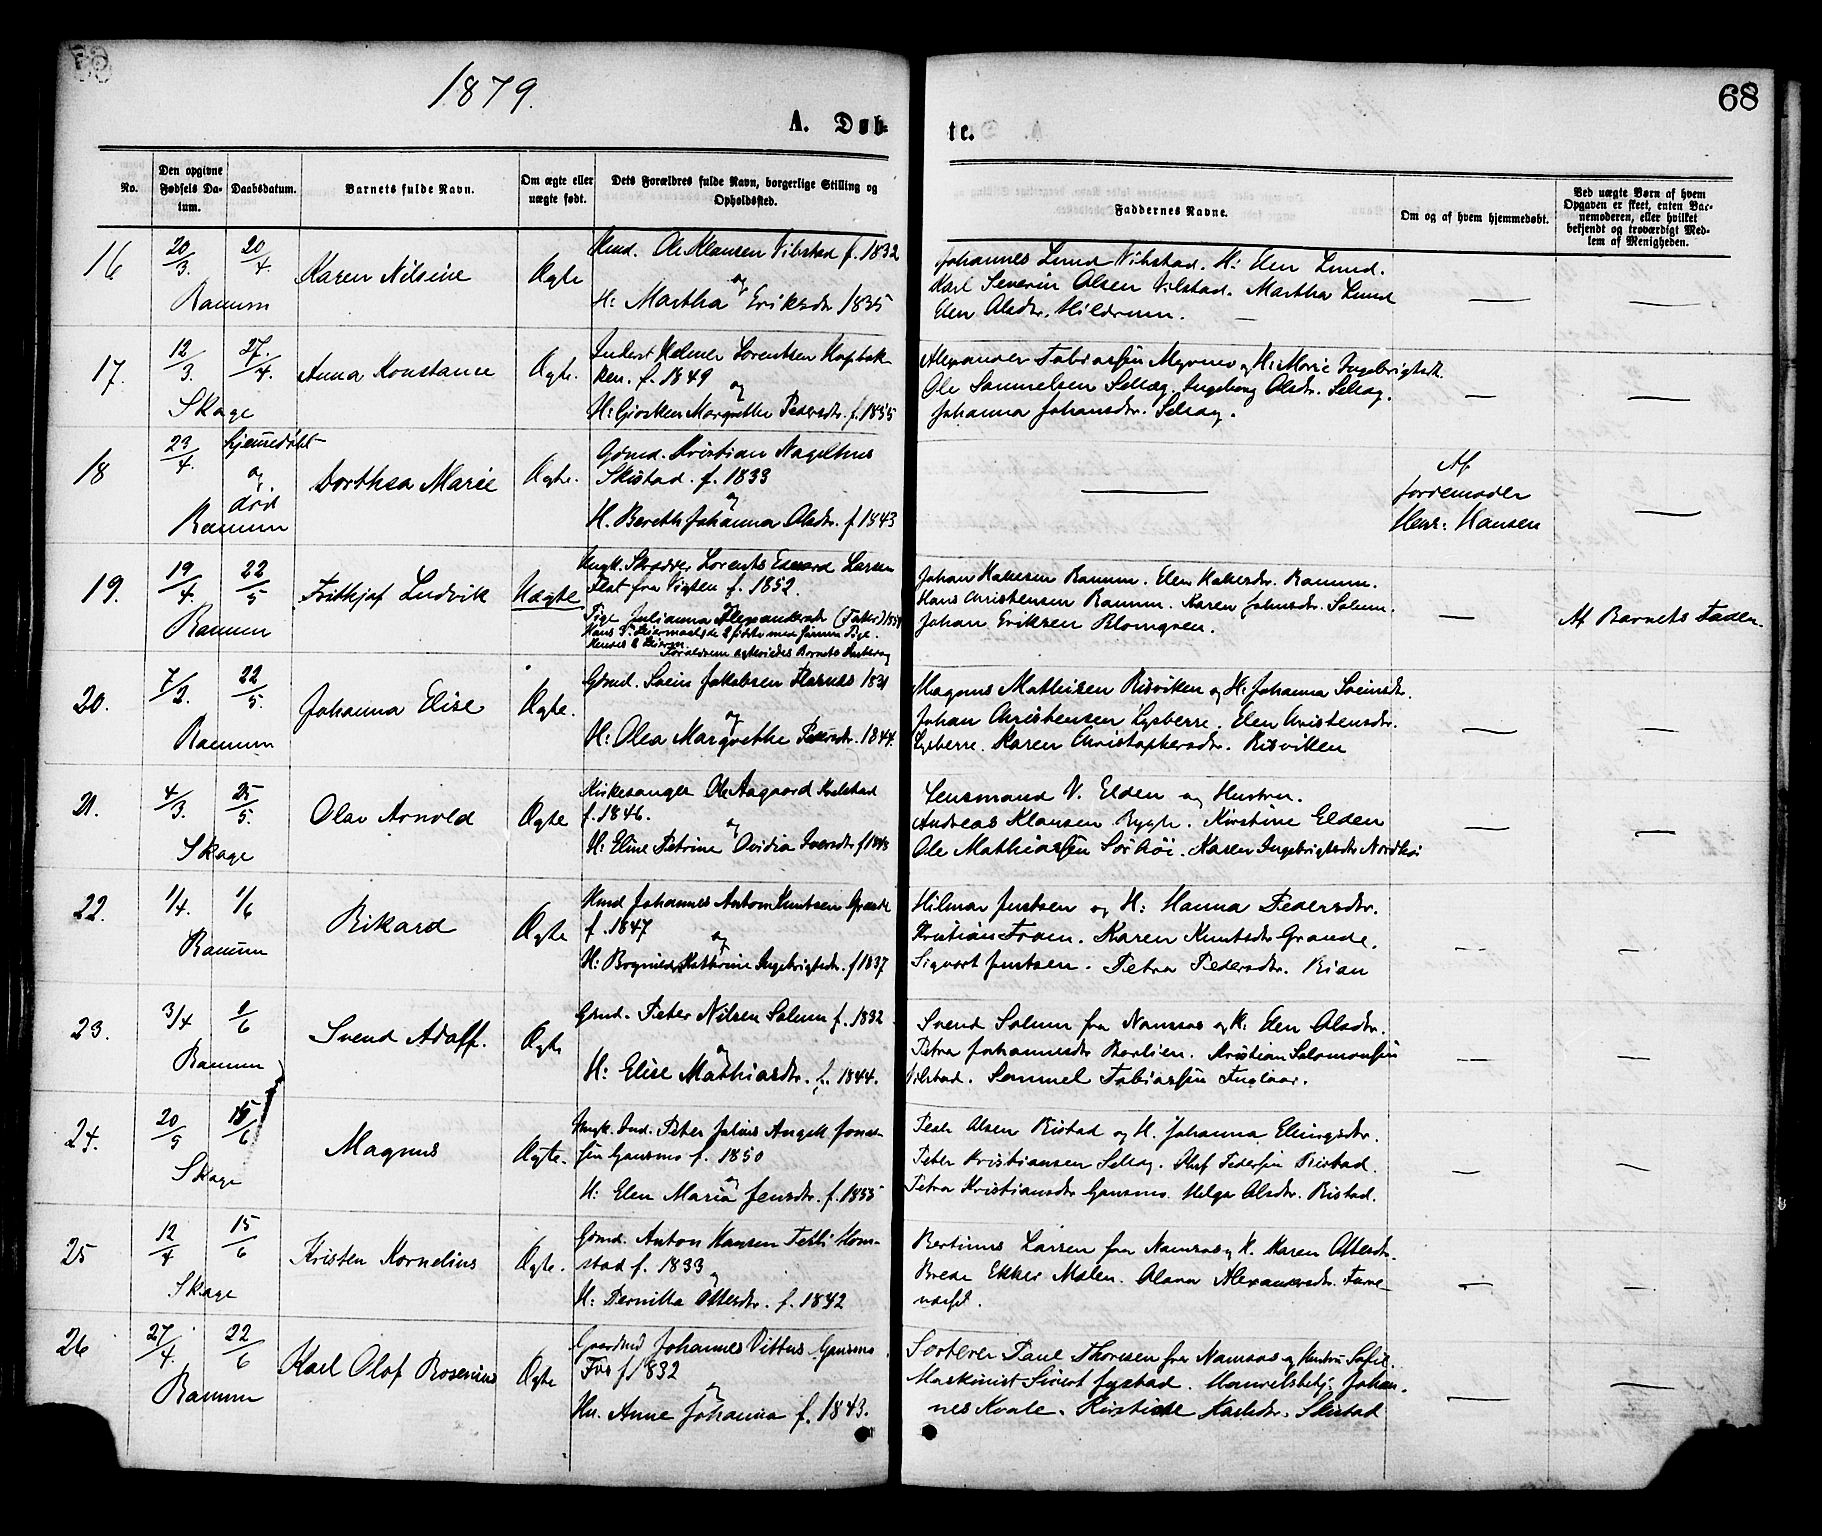 1879.
68
A. Døb-
te.
No.
Den opgivne Fødsels Da-tum.
Daabsdatum.
Barnets fulde Navn.
Om ægte eller uægte født.
Dets Forældres fulde Navn, borgerlige Stilling og Opholdssted.
Faddernes Navne.
Om og af hvem hjemmedøbt.
Ved uægte Børn af hvem Opgaven er skeet, enten Bar-nemoderen, eller hvilket bekjendt og troværdigt Med-lem af Menigheden.
16
20/3.
20/4.
Ranum
Karen Nilsine
Ægte
Hmd. Ole Klausen Vibstad f. 1832
og
H: Martha Eriksdtr 1835
Johannes Lund Vibstad. H: Elen Lund.
Karl Severin Olsen Vibstad. Martha Lund
Elen Olsdtr. Hildrum. —
17.
12/3.
27./4.
Skage
Anna Konstance
Ægte.
Inderst Helmer Lorentsen
f. 1849
og
Margrethe Pedersdtr. f. 1855
Alexander Tobiassen Myrmo og H: Marie Ingebrigtsdt.
Ole Samuelsen Selæg. Ingeborg Olsdtr. Selæg.
Johanna Johansdtr. Selæg.
18
23/4.
hjemmedøbt
og
død
Ranum
Dorthea Marie
Ægte.
Gdmd. Kristian Nagelhus
Skistad. f. 1833
og
H. Bereth Johanna Olsdtr. f. 1843
Af
Jordemoder
Henr: Hansen
19.
19/4.
22/5
Ranum
Frithjof Ludvik
Uægte
Ungk. Skrædder Lorents Edvard Larsen
Flat fra Vigten f. 1852.
Pige Julianna Alexandersdt
Johan Hakesen Ranum. Elen Hakesdtr. Ranum.
Hans Christensen Ranum. Karen Johnsdtr. Solum.
Johan Eriksen Blomqsen.
Af Barnets Fader.
20.
7/2.
22/5.
Ranum
Johanna Elise
Ægte.
Gdmd. Svein Jakobsen 1831
og
H: Olea Margrethe Pedersdtr. 1844.
Magnus Mathisen Risviken og H: Johanna Sveinsdtr.
Johan Christensen Lysberre. Elen Christensdtr.
Lysberre. Karen Christophersdtr. Risviken
21.
4/3.
25/5.
Skage
Olav Arnold
Ægte
Kirkesanger Ole Aagaard
f. 1846.
og
H: Eline Petrine Ovidia Iversdtr
Lensmand V. Elden og Hustru.
Andreas Klausen Rygh. Kirstine Elden
Ole Mathiassen Sørhøi. Karen Ingebrigtsdtr Nordhøi
22.
1/4.
1/6
Ranum
Rikard
Ægte
Hmd Johannes Anton Knutsen Grande
f. 1847
og
H: Kathrine Ingebrigtsdtr. f 1837
Hilmar Justsen og H: Hanna Pedersdtr.
Kristian Troen. Karen Knutsdtr Grande.
Sigvart Justsen. Petra Pedersdtr. Rian
23.
3/4
1/6
Ranum
Svend Adolf.
Ægte
Gdmd. Peter Nilsen Solum f. 1832
og
H: Elise Mathiasdtr. f. 1844.
Svend Solum fra Namsos og H. Elen Olsdtr.
Petra Johannesdtr Barlien. Kristian Salomonsen
Vibstad. Samuel Tobiassen Fuglaar.
24.
20/9
15/6
Skage
Magnus
Ægte.
Ungk. Ind. Peter Julius Angell Jonas-
sen Gansmo f. 1850
og
H: Elen Maria Jensdtr. f. 1855
Peder Olsen Ristad og H. Johanna Elingsdtr.
Peter Kristiansen Selæg. Oluf Pedersen Ristad.
Petra Kristiansdtr Gansmo. Helga Olsdtr. Ristad.
25
12/4
15/6
Skage
Kristen Kornelius
Ægte.
Gdmd. Anton Hansen Fetli Hom-
stad f. 1833
og
H: Pernilla Ottersdtr. f. 1842
Bertinus Larsen fra Namsos og H. Karen Ottersdtr.
Brede Ekker Malen. Olava Alexandersdtr.
26
27/4.
22/6
Ranum
Karl Olof Rosenius
Ægte
Gaardmd Johannes Vittus Gansmo
f 1832
og
Hu. Anne Johanna f. 1843.
Sorterer Paul Thoresen fra Namsos og Hustru
Maskinist Sivert Johan-
nes Kvale. Kirstine Karlsdtr. Skistad